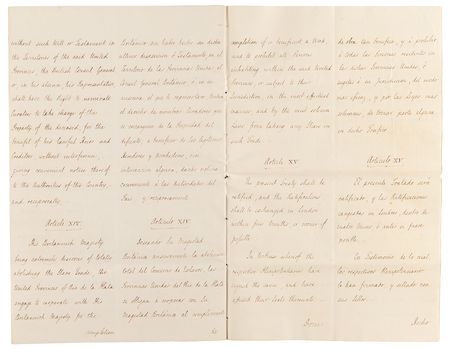 without such Will or Testament in
the Territories of the said United
Provinces, the British Consul General
or, in his absence, his Representative
shall have the right to nominate
Curators to take charge of the
Property of the deceased, for the
benefit of his lawful Heirs and
Creditors without interference,
giving convenient notice thereof
to the Authorities of the Country,
and reciprocally.
Article XIV.
His Britannick Majesty
being extremely desirous of totally
abolishing the Slave Trade, the
United Provinces of Rio de la Plata
engage to cooperate with His
Britannick Majesty for the
completion
Britanica sin haber hecho su dicha
ultima disposicion o Testamento en el
Territorio de las Provincias Unidas el
Consul General Britanico, o en su
ausencia, el que le represente, tendra
el derecho de nombrar Curadores que
se encarguen de la Propiedad del
difunto, a beneficio de los legitimos
Herederos y Acreedores, sin
intervencion alguna, dando noticia
conveniente a las Autoridades del
Pais y reciprocamente.
Articulo XIV.
Deseando Su Magestad
Britanica ansiosamente la abolicion
total del Comercio de Esclavos, las
Provincias Unidas del Rio de la Plata
se obligan a cooperar con Su
Magestad Britanica al complemento
de
completion of so beneficent a Work,
and to prohibit all Persons
inhabiting within the said United
Provinces, or subject to their
Jurisdiction, in the most effectual
manner, and by the most solemn
Laws, from taking any Share in
such Trade.
Article XV.
The present Treaty shall be
ratified, and the Ratifications
shall be exchanged in London
within four Months, or sooner if
possible.
In Witness whereof the
respective Plenipotentiaries have
signed the same, and have
affixed their Seals thereunto.
de obra tan benefica, y a prohibir
a todas las Personas residentes en
las dichas Provincias Unidas, o
sugetas a su Jurisdiccion, del modo
mas eficaz, y por las Leyes mas
solemnes, de tomar parte alguna
en dicho Trafico.
Articulo XV.
El presente Tratado sera
ratificado, y las Ratificaciones
cangeadas en Londres, dentro de
cuatro Meses, o antes si fuese
posible.
En Testimonio de lo cual
los respectivos Plenipotenciarios
lo han firmado y sellado con
sus Sellos.
Hecho